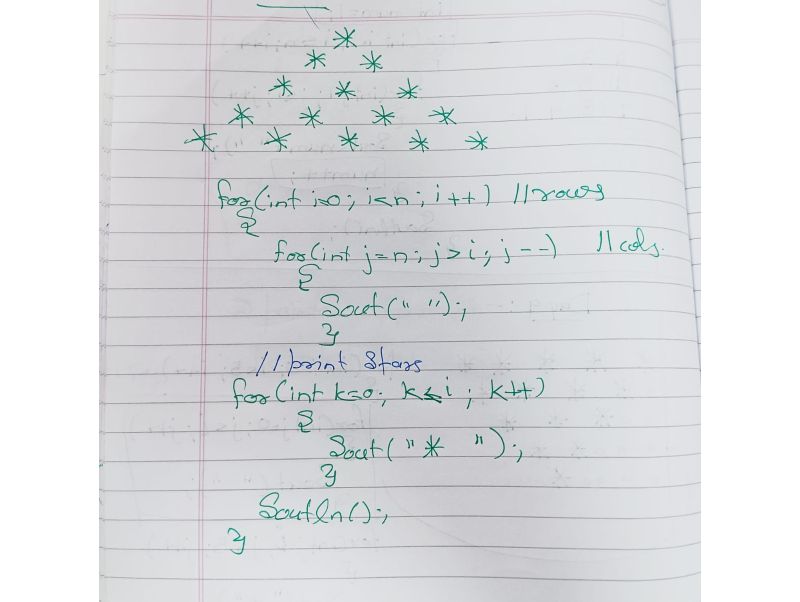 *
* *
* * *
* * * *
* * * * *
for(int i=0; i<n; i++) //rows
{
for(int j=n; j>i; j--) //cols.
{
Sout(" ");
}
//print Stars
for(int k=0; k≤i; k++)
{
Sout("* ");
}
Soutln();
}